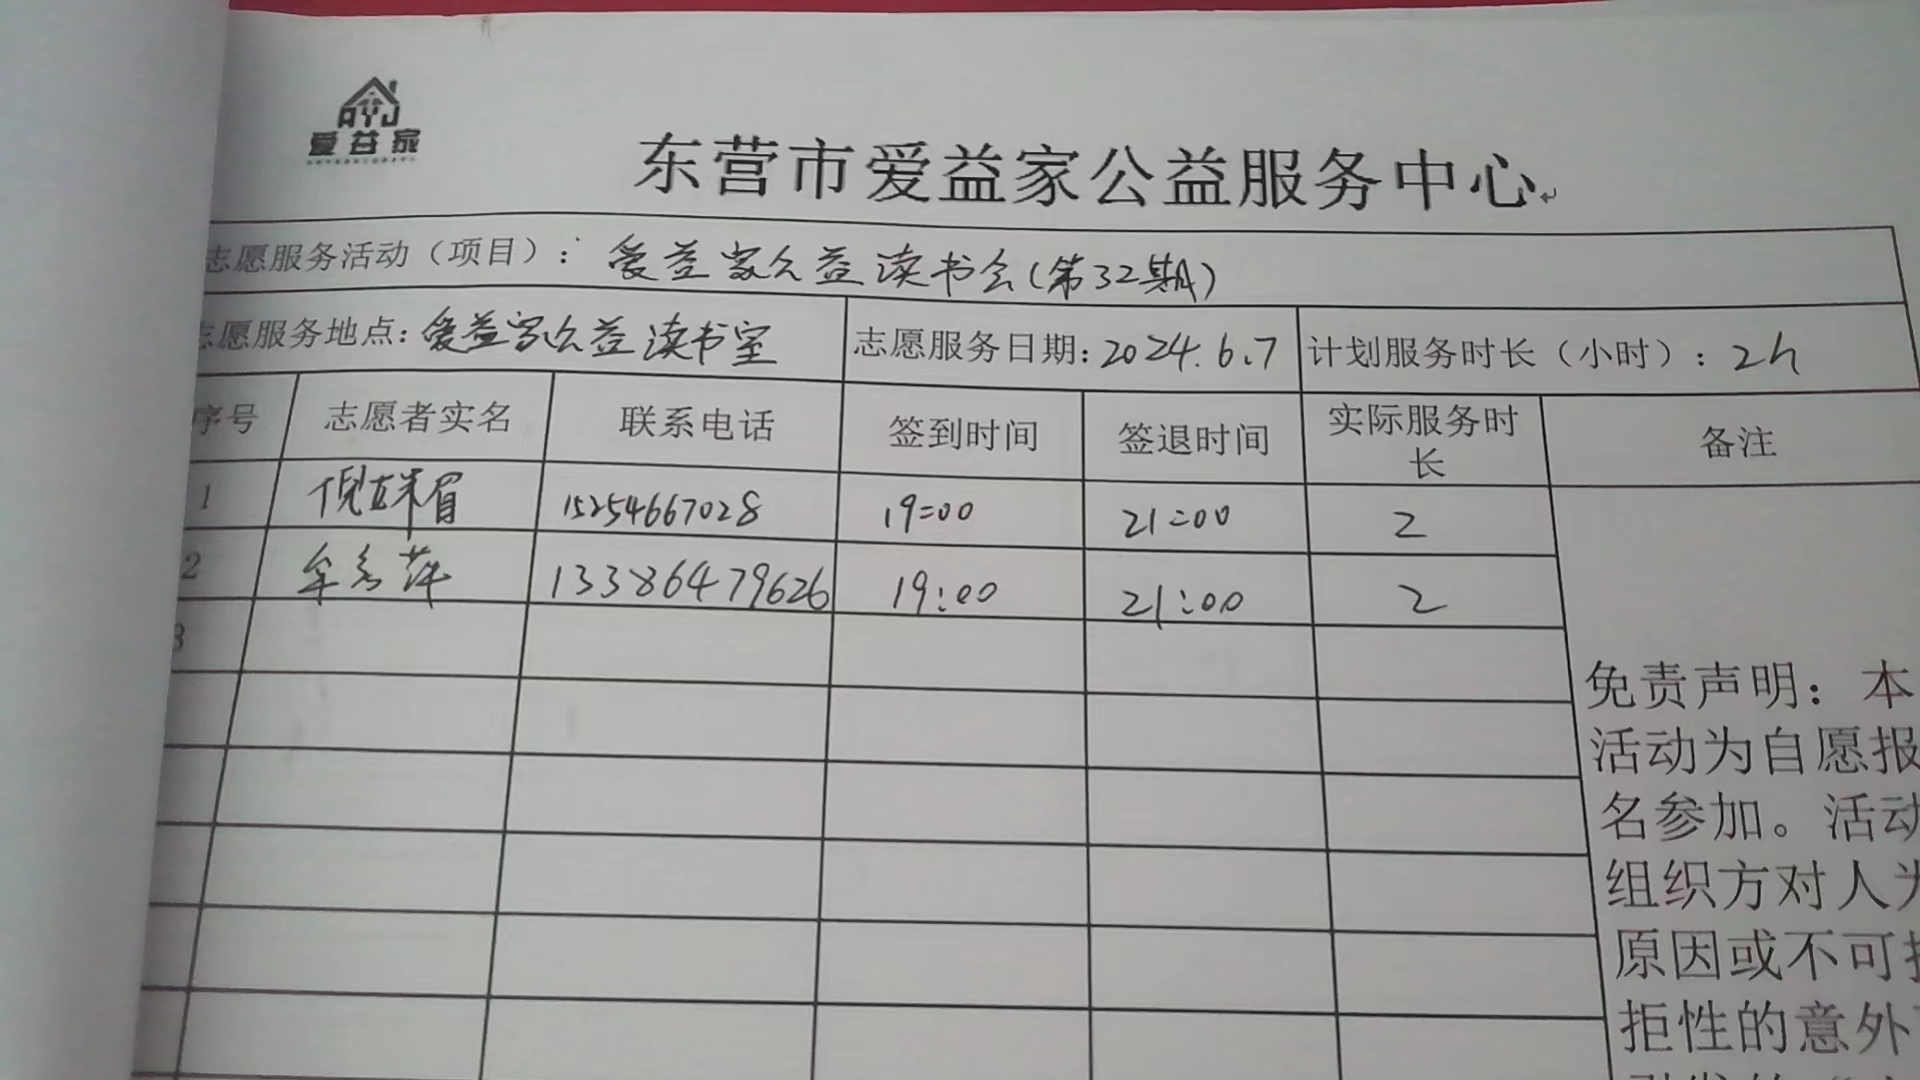 AYJ
爱益家
东营市爱益家公益服务中心
志愿服务活动（项目）：爱益家公益读书会（第32期）
志愿服务地点：爱益家公益读书室 志愿服务日期：2024.6.7 计划服务时长（小时）：2h
序号 志愿者实名 联系电话 签到时间 签退时间 实际服务时长 备注
1 倪珠眉 15254667028 19:00 21:00 2
2 牟秀萍 13386479626 19:00 21:00 2
3
免责声明：本
活动为自愿报
名参加。活动
组织方对人为
原因或不可抗
拒性的意外